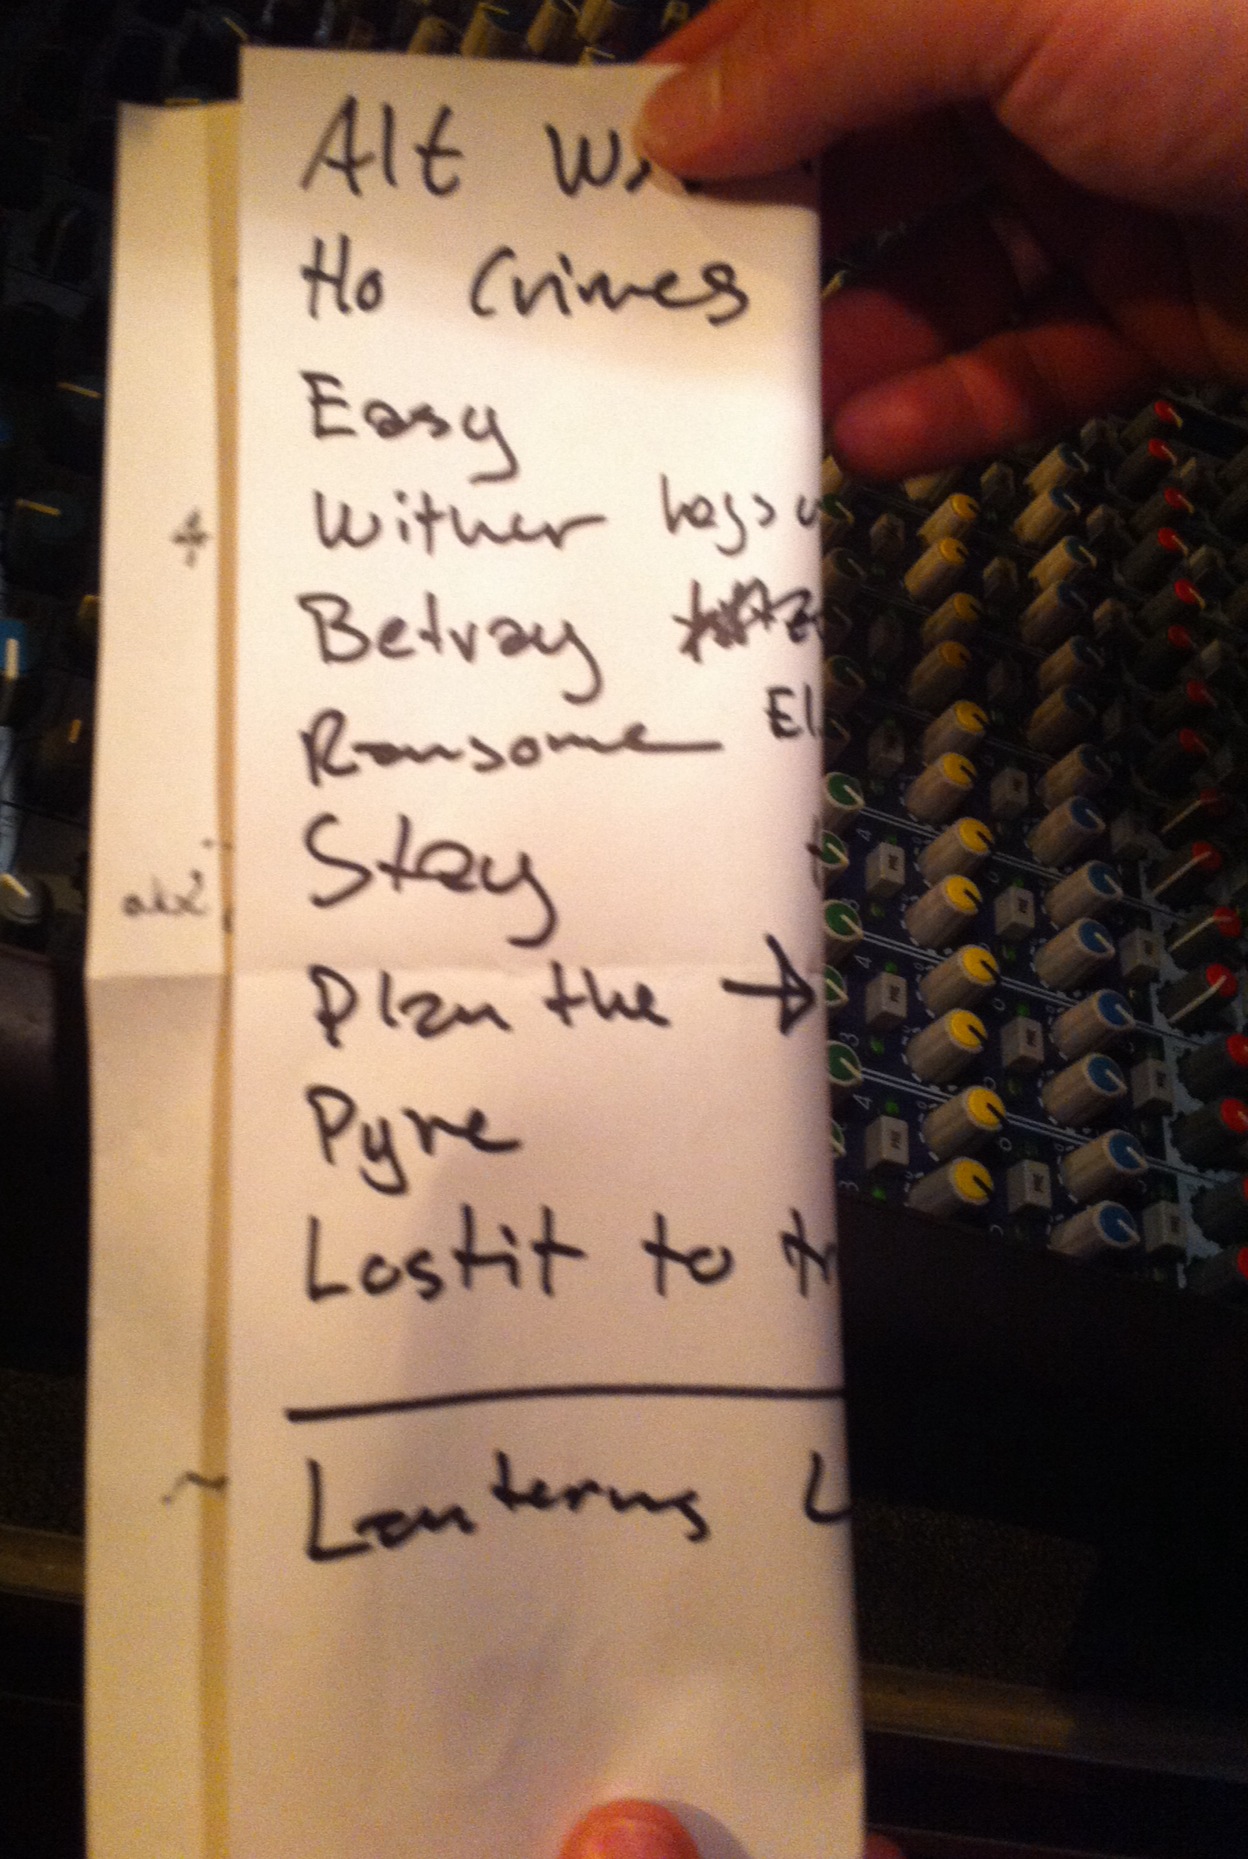 Alt
Ho Crimes
Easy
Wither
Betray
El
Ransome
Stay
Plan the →
Pyre
Lostit to tr
Lanterns L